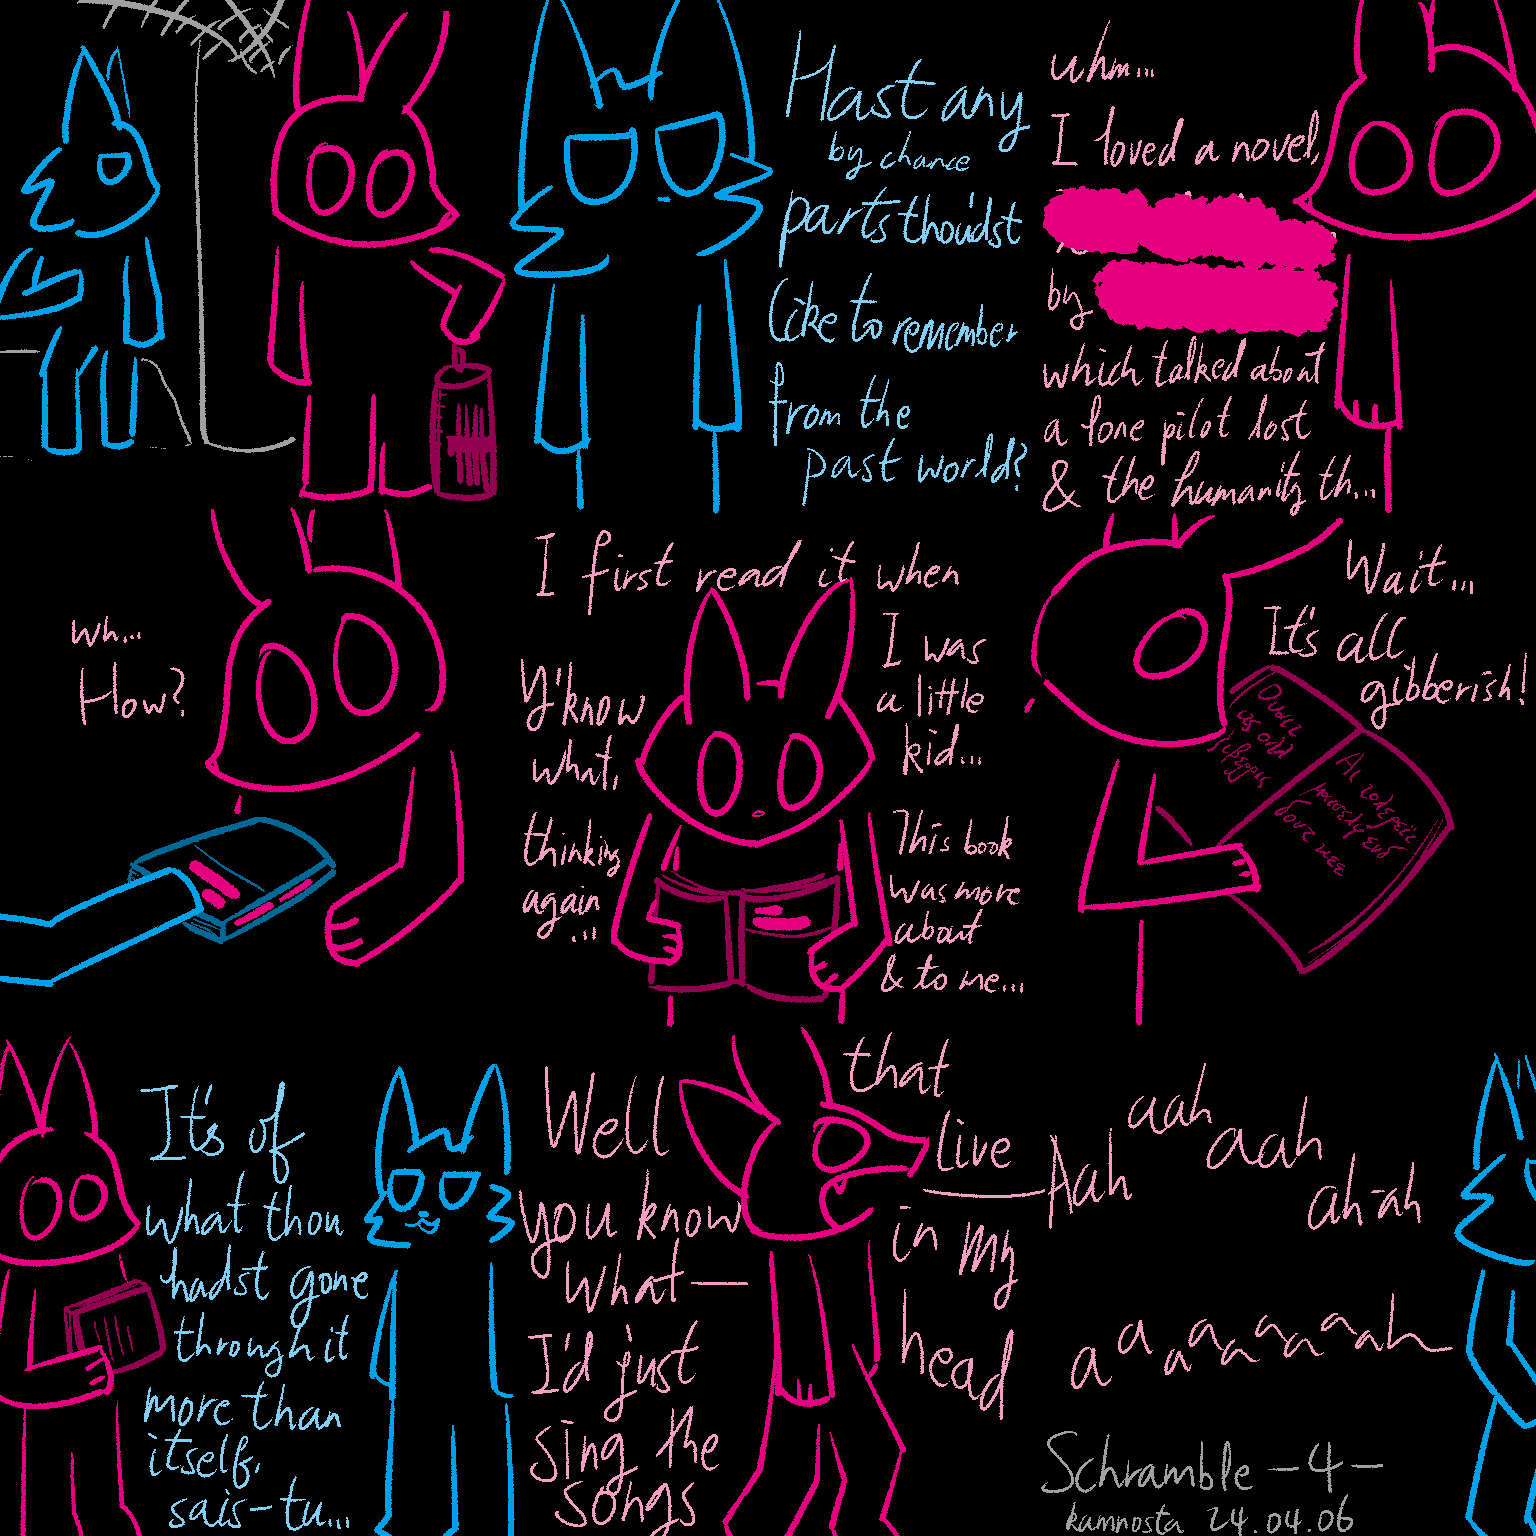 Hast any
by chance
parts thou'dst
like to remember
from the
past world?
uhm...
I loved a novel,
by
which talked about
a lone pilot lost
& the humanity th...
wh...
How?
I first read it when
I was
a little
kid...
Y'know
what,
thinking
again
...
This book
was more
about
& to me...
Wait...
It's all
gibberish!
It's of
what thou
hadst gone
through it
more than
itself,
sais-tu...
Well
you know
what—
I'd just
sing the
songs
that
live
in my
head
Aah aah aah ah-ah
a a a a a a a a ah
Schramble -4-
kamnosta 24.04.06